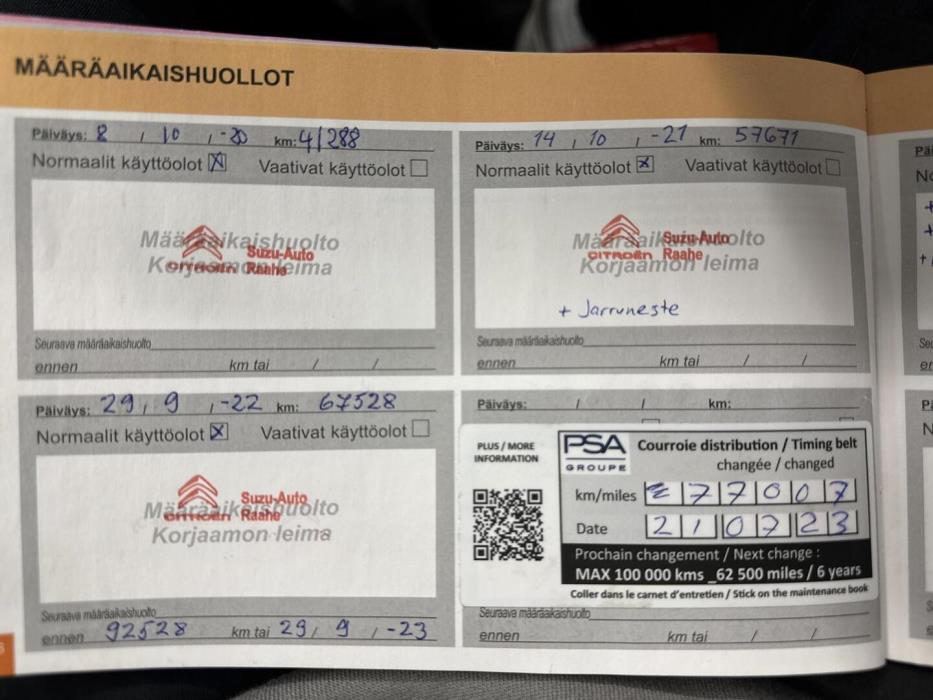 MÄÄRÄAIKAISHUOLLOT
Päiväys: 8 / 10 / -20 km: 41288
Normaalit käyttöolot ☒ Vaativat käyttöolot ☐
Määräaikaishuolto
Korjaamon leima
Suzu-Auto
CITROËN Raahe
Seuraava määräaikaishuolto
ennen km tai / /
Päiväys: 14 / 10 / -21 km: 57671
Normaalit käyttöolot ☒ Vaativat käyttöolot ☐
Määräaikaishuolto
Korjaamon leima
Suzu-Auto
CITROËN Raahe
+ Jarruneste
Seuraava määräaikaishuolto
ennen km tai / /
Päiväys: 29 / 9 / -22 km: 67528
Normaalit käyttöolot ☒ Vaativat käyttöolot ☐
Määräaikaishuolto
Korjaamon leima
Suzu-Auto
CITROËN Raahe
Seuraava määräaikaishuolto
ennen 92528 km tai 29 / 9 / -23
Päiväys: / / km:
PLUS / MORE
INFORMATION
PSA
GROUPE
Courroie distribution / Timing belt
changée / changed
km/miles 77007
Date 210723
Prochain changement / Next change :
MAX 100 000 kms _62 500 miles / 6 years
Coller dans le carnet d'entretien / Stick on the maintenance book
Seuraava määräaikaishuolto
ennen km tai / /